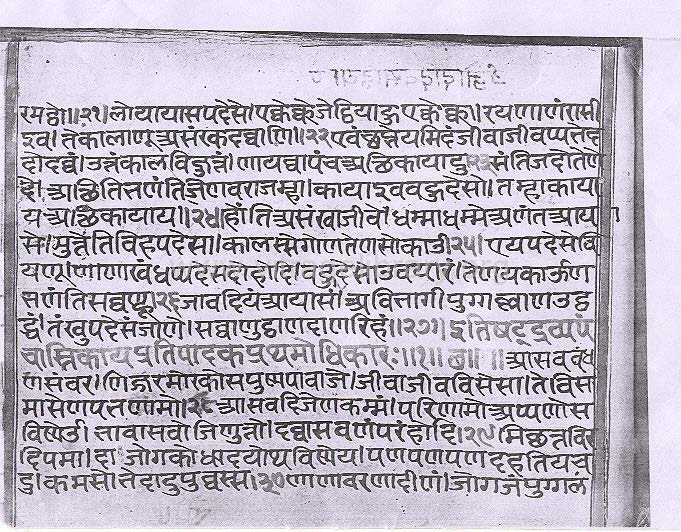 रमठो॥२१। लोयायासपदेसे। एक्केक्केजेठियाहुएक्केक्का। रयणाणंरासी
इव। तेकालाणूअसंखदव्वाणि॥२२एवंछप्नेयमिदंजीवाजीवप्पनेद
दोदव्वं। उत्तंकालविजुत्तं। णायव्वापंचअछिकायाहु२३संतिजदोतेणे
दे। अछितिनणंतिजिणवराजम्हा। कायाइवबहुदेसा। तम्हाकाया
यअछिकायाय॥२४होंतिअसंखाजीवे। धम्माधम्मेअणंतआया
से। मुत्तेतिविहपदेसा। कालस्सेगोणतेणसोकाउ२५। एयपदेसोवि
यणू। णाणाखंधप्पदेसदोहोदि। बहुदेसोउवयारं। तेणयकाऊन
नणंतिसव्वण्हू॥२६जावदियंआयासं। अविनागीपुग्गलाणउट्ठ
द्धं। तंखुपदेसंजाणे। सव्वाणुट्ठाणदाणरिहं॥२७॥ इतिषट्द्रव्यपं
चास्तिकायप्रतिपादकप्रथमोधिकारः॥१॥ ॥ आसवबंध
णसंवर। णिज्जरमोरकोसपुस्मपावाजे। जीवाजीवविसेसा। तेविसमा
मासेणपनणमो॥२८आसवदिजेणकम्मं। परिणामोअप्पणोस
विणेउ। नावासवोजिणुत्तो। दव्वासवणंपरंहोदि। २९मिछत्तविर
दिपमा। दाजोगकोधादयोथविणेय। पणपणपणदहतियच
दु। कमसोनेदादुपुव्वस्स॥३०णाणावरणादीणं। जोग्गंजंपुग्गलं